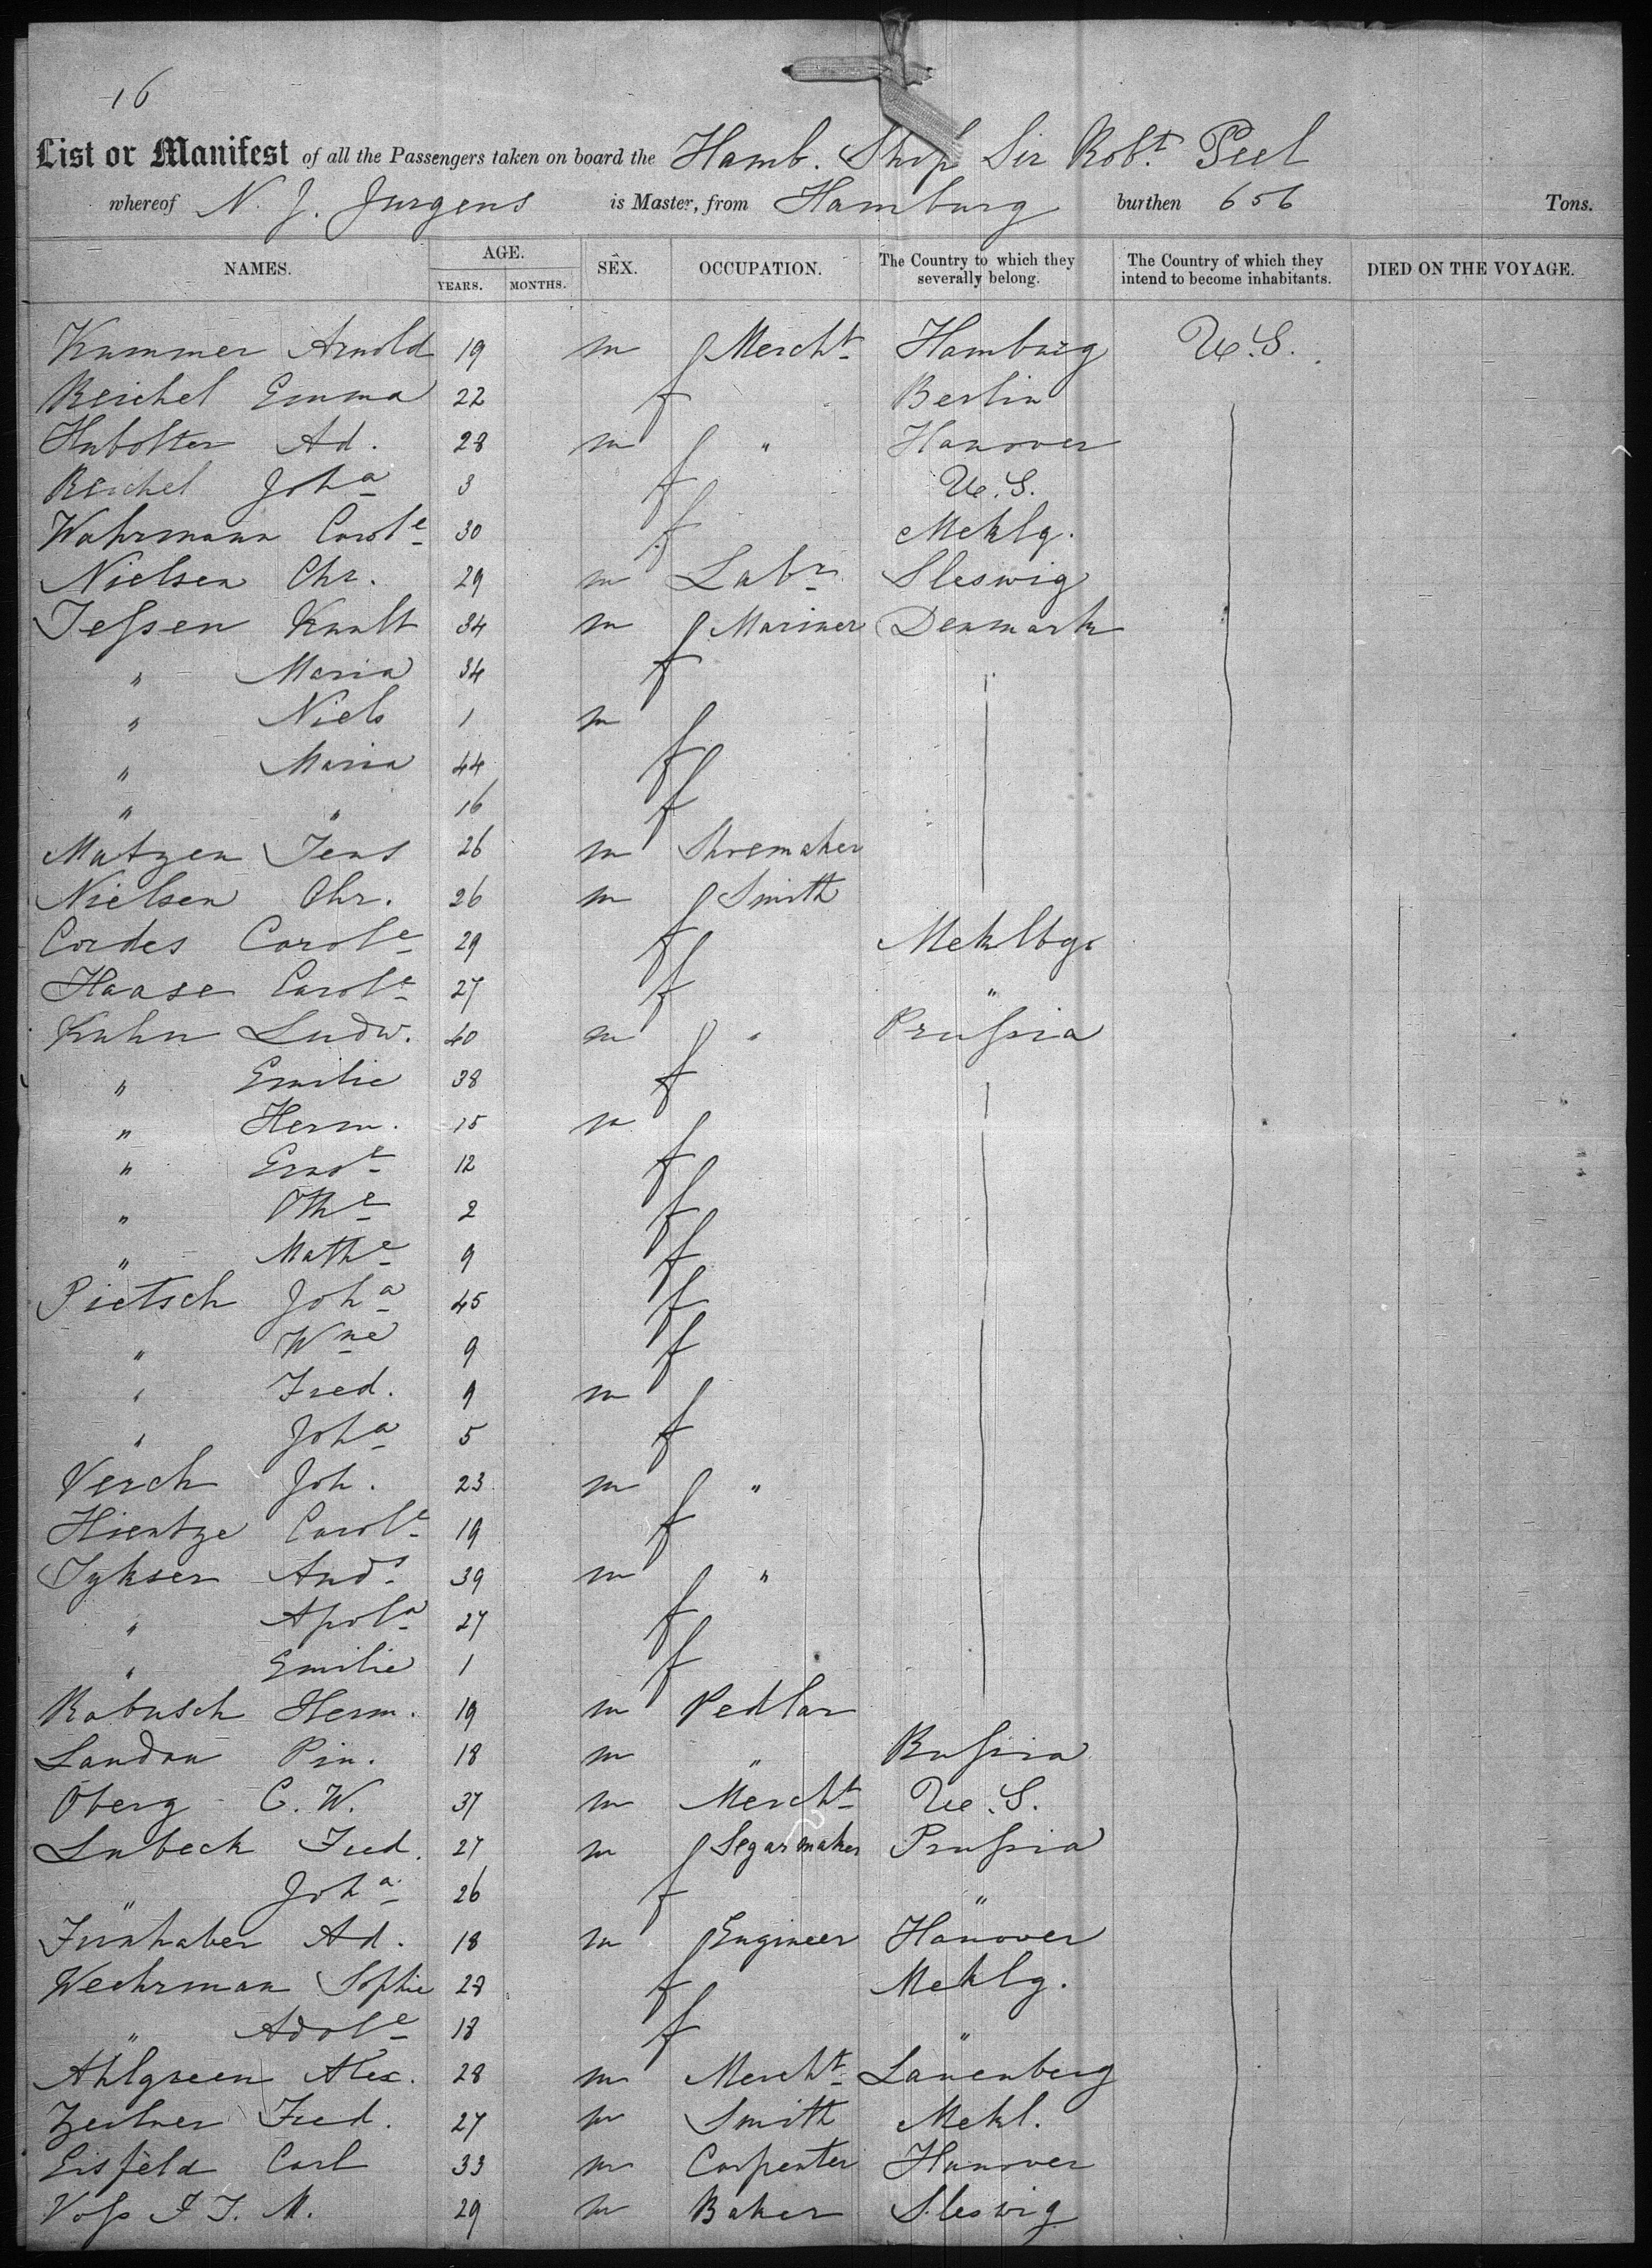 16
List or Manifest of all the Passengers taken on board the Hamb. Ship Sir Robt. Peel
whereof N. J. Jurgens is Master, from Hamburg burthen 656 Tons.
NAMES. AGE. YEARS. MONTHS. SEX. OCCUPATION. The Country to which they severally belong. The Country of which they intend to become inhabitants. DIED ON THE VOYAGE.
Kummer Arnold 19 m Mercht Hamburg U.S.
Reichel Emma 22 f Berlin
Hubotter Ad. 28 m " Hanover
Reichel Joha 3 f U.S.
Wahrmann Carole 30 f Meklg.
Nielsen Chr. 29 m Labr Sleswig
Jessen Knutt 34 m Mariner Denmark
" Maria 34 f
" Niels 1 m
" Maria 44 f
" " 16 f
Matzen Jens 26 m Shoemaker
Nielsen Chr. 26 m Smith
Cordes Carole 29 f Meklbg.
Haase Carole 27 f "
Kuhn Ludw. 40 m " Prussia
" Emilie 38 f
" Herm. 15 m
" 12 f
" Othe 2 f
" Mathe 9 f
Pietsch Joha 45 f
" Wne 9 f
" Fred. 9 m
" Joha 5 f
Verch Joh. 23 m "
Hientze Carole 19 f
Sykser Ands 39 m "
" Apola 27 f
" Emilie 1 f
Rabusch Herm. 19 m Pedlar
Landau Pin. 18 m " Russia
Oberg C. W. 37 m Mercht U.S.
Lubeck Fred. 27 m Segarmaker Prussia
" Joha 26 f "
Funhaber Ad. 18 m Engineer Hanover
Wechrman Sophie 28 f Meklg.
" Adole 18 f "
Ahlgreen Alex. 28 m Mercht Lauenberg
Zeilner Fred. 27 m Smith Mekl.
Eisfeld Carl 33 m Carpenter Hanover
Voss J. M. 29 m Baker Sleswig